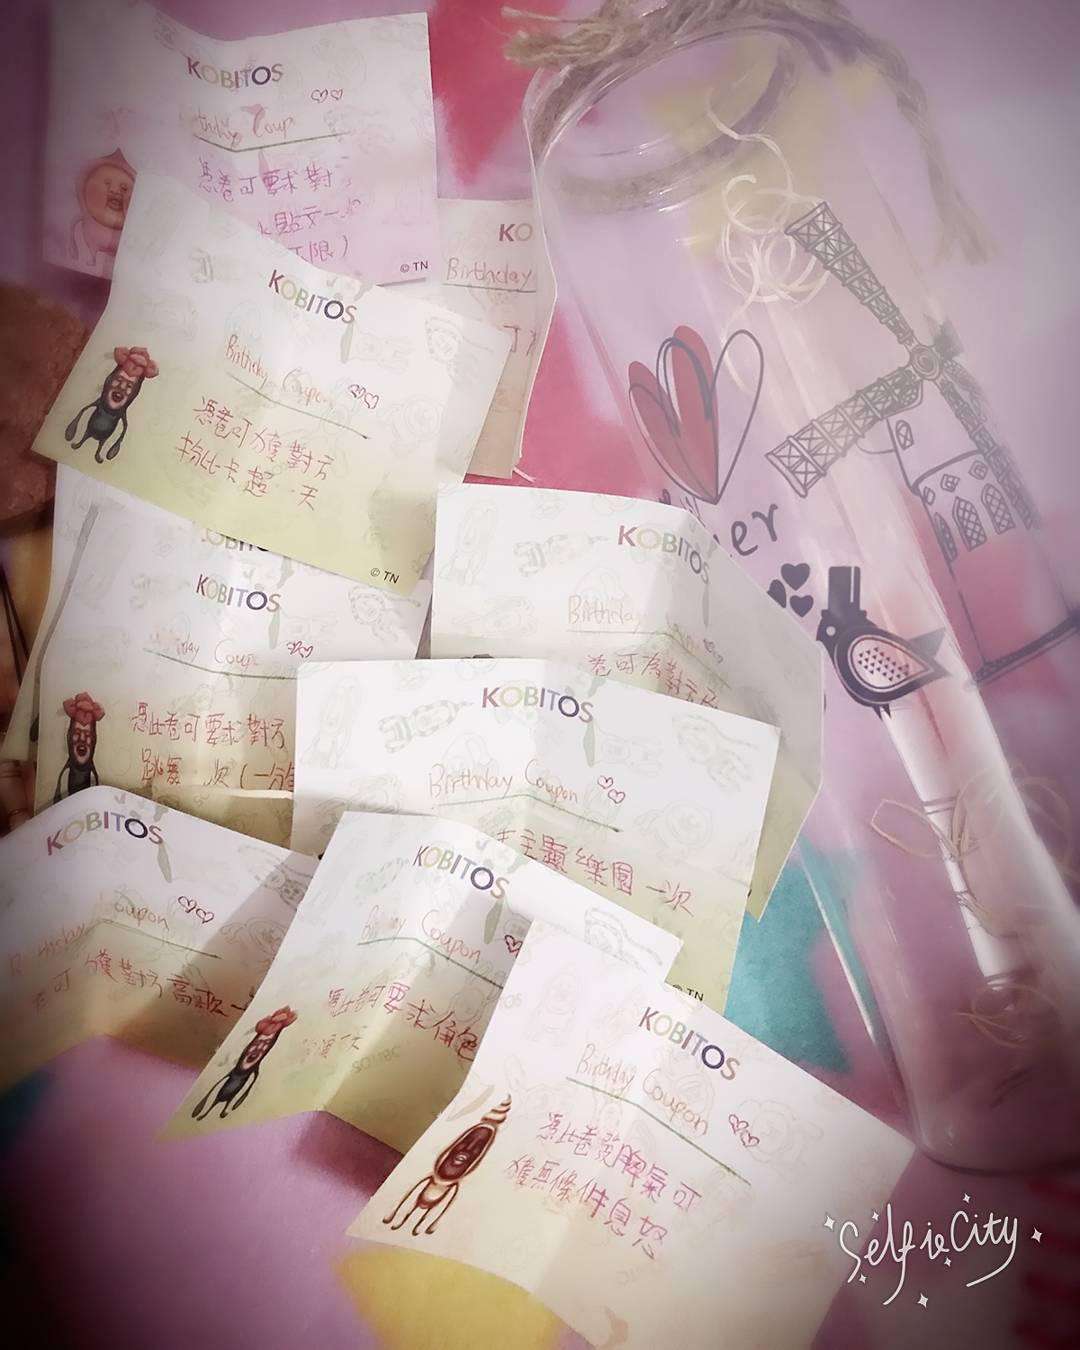 KOBITOS
憑卷可要求對
貼文一
限)
© TN
KO
Birthday
KOBITOS
Birthday Coupon
憑卷可獲對方
扮比卡超一天
© TN
KOBITOS
Coup
憑此卷可要求對方
跳舞一次(一分
KOBITOS
Birthday
卷可為對方
KOBITOS
Birthday Coupon
主題樂園一次
© TN
KOBITOS
Birthday Coupon
可獲對方高歌一
KOBITOS
Birthday Coupon
憑此卷可要求角色
扮演一天
KOBITOS
Birthday Coupon
憑此卷發脾氣可
獲無條件息怒
ver
SelfieCity